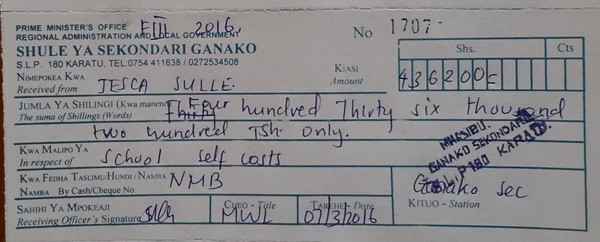 PRIME MINISTER'S OFFICE FIII 2016,
REGIONAL ADMINISTRATION AND LOCAL GOVERNMENT
No 1707-
SHULE YA SEKONDARI GANAKO
S.L.P. 180 KARATU, TEL.0754 411638 / 0272534508
Shs. Cts
NIMEPOKEA KWA
Received from JESCA SULLE.
KIASI
Amount 436200=
JUMLA YA SHILINGI (Kwa maneno) Thirty Four hundred Thirty six thousand
The suma of Shillings (Words) two hundred Tsh only.
KWA MALIPO YA
In respect of School self costs
MHASIBU.
GANAKO SEKONDARI
P 180 KARATU.
KWA FEDHA TASLIMU/HUNDI / NAMBA
NAMBA By Cash/Cheque No. NMB
Ganako sec
KITUO - Station
SAHIHI YA MPOKEAJI
Receiving Officer's Signature
CHEO - Title MWL
TAREHE - Date 07/3/2016